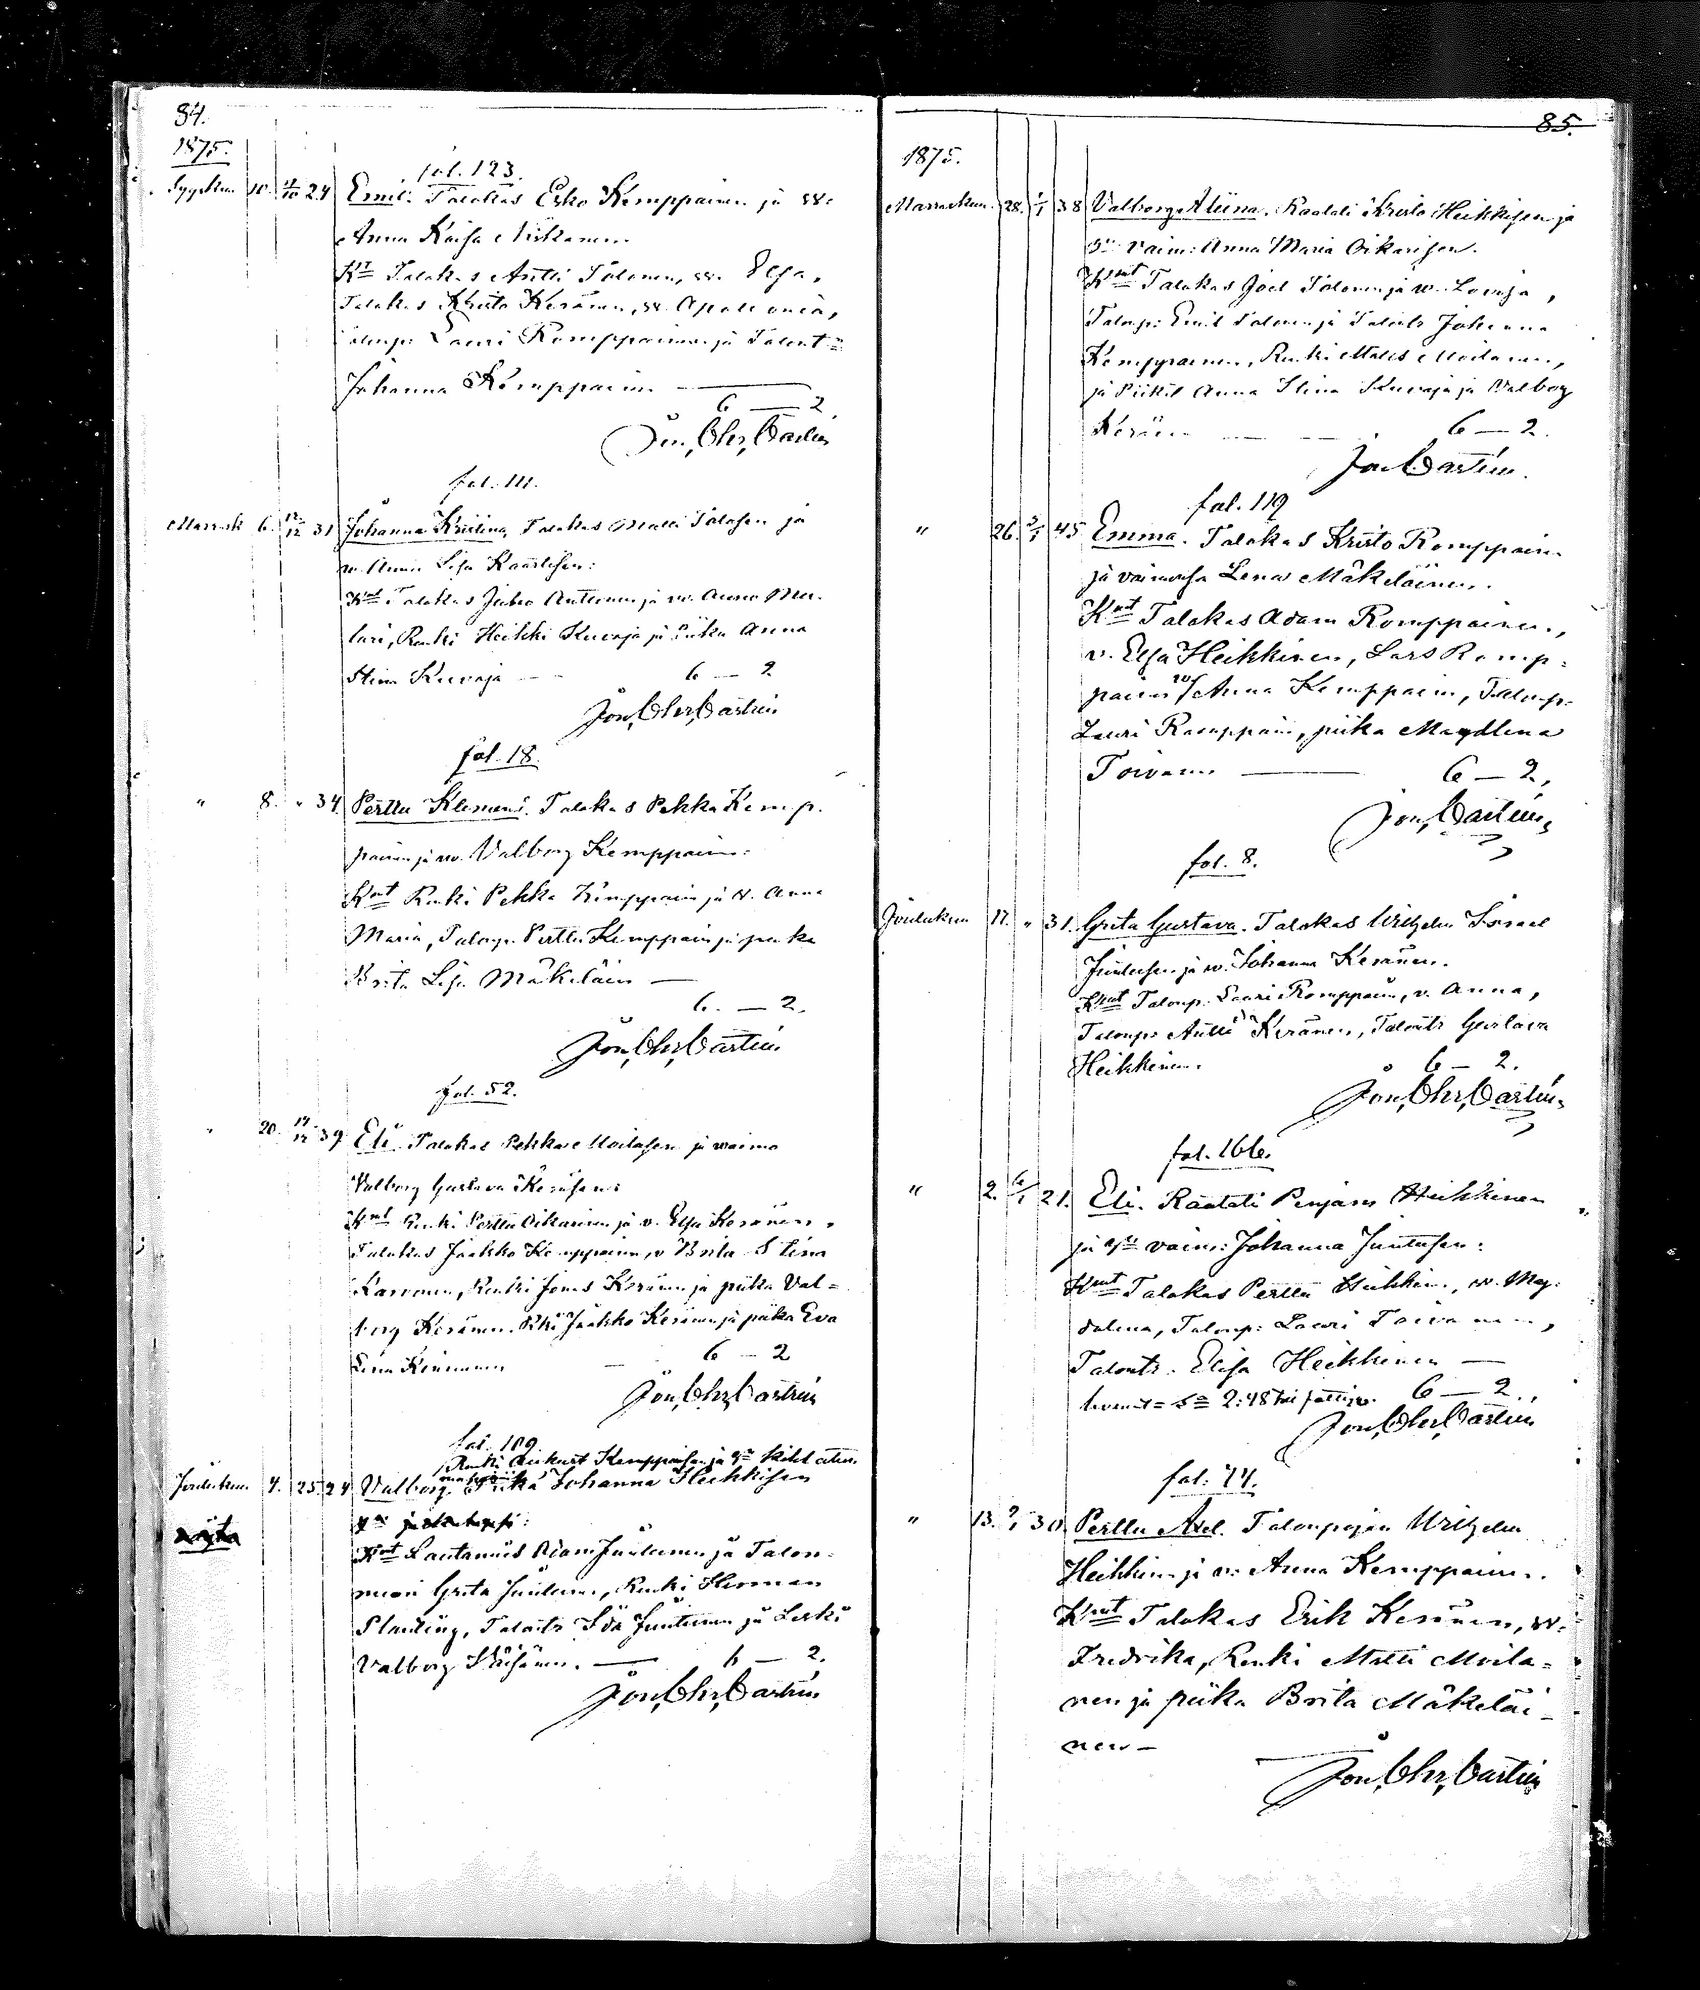 84.
1875.
fol. 123.
Syyskuu 10. 24 Emil. Talokas Esko Kemppainen ja w.
Anna Kaisa
Talokas Antti Tolonen, w. Elsa,
Talokas Kristo Keränen, w. Apolonia,
Lauri Romppainen ja
Johanna Kemppainen
6 — 2
Jon, Chr, Castrén
fol. 111.
Marrask 6. 12/12 31 Johanna Kristina, Talokas Matti Tolosen ja
w. Anna Lisa
Knt Talokas Juho Anttonen ja w. Anna Mu-
lari, Renki Heikki Kuvaja ja Piika Anna
Stina Kuvaja
6 — 2
Jon, Chr, Castrén
fol. 18.
" 8. " 34. Perttu Klemens. Talokas Pekka Kemp-
painen ja w. Valborg Kemppainen:
Knt Renki Pekka Kemppainen ja w. Anna
Maria, Talonp. Perttu Kemppainen ja piika
Brita Lisa Mäkeläin —
6. — 2.
Jon, Chr, Castrén
fol. 52.
" 20. 39 Eli. Talokas Pekka Moilasen ja waimo
Valborg Gustava Keräsen:
Knt Renki Perttu Oikarinen ja v. Elsa Keränen,
Talokas Jaakko Kemppainen, v Brita Stina
Karvonen, Renki Jonas Keränen ja piika Val=
borg Keränen. Rki Jaakko Keränen ja piika Eva
Lena
6 — 2
Jon, Chr, Castrén
fol. 109
Renki Aukust Kemppaisen ja
Joulukuu 4. 25 24 Valborg. Piika Johanna Heikkisen
Knt Lautamies Adam Juntunen ja Talon-
Grita Juntunen, Renki Herman
Ida Juntunen ja Leski
Valborg Väisänen. — 6 — 2.
Jon, Chr, Castrén
85.
1875.
Marraskuu. 28. 1/1 38 Valborg Aliina. Räätäli Kristo Heikkisen ja
vaim: Anna Maria Oikarisen.
Knt Talokas Joel Tolonen ja w. Lovisa,
Talonp: Emil Tolonen ja Johanna
Kemppainen, Renki Matts Moilanen,
ja Piikät Anna Stina Kuvaja ja Valborg
Keränen 6 — 2.
Jon Castrén.
fol. 119
" 26. 45 Emma. Talokas Kristo Romppainen
ja vaimonsa Lena Mäkeläinen.
Knt Talokas Adam Romppainen,
v. Elsa Heikkinen, Lars Romp-
painen w/ Anna Kemppainen, Talonp-
Lauri Romppain, piika Magdlena
Toivanen — 6 — 2,
Jon, Castrén,
fol. 8.
Joulukuu 17. " 31. Greta Gustava. Talokas Wilhelm Israel
Juntusen ja w. Johanna Keränen.
Knt Talonp. Lauri Romppain, v. Anna,
Talonp: Antti Keränen, Talontr Gustava
Heikkinen. 6 — 2.
Jon, Chr, Castrén,
fol. 166.
" 2. 6/1 21. Eli. Räätäli Penjam Heikkinen
ja vaim: Johanna Juntusen:
Knt Talokas Perttu Heikkinen, w. Mag-
dalena, Talonp: Lauri Toivanen,
Talontr. Elisa Heikkinen —
6 — 2.
Jon, Chr, Castrén
fol. 74.
" 13. 30 Perttu Axel. Talonpojan Wilhelm
Heikkinen ja w: Anna Kemppainen.
Knt Talokas Erik Keränen, w.
Fredrika, Renki Matti Moila=
nen ja piika Brita Mäkeläi-
nen —
Jon, Chr, Castrén